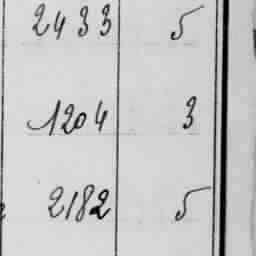 2433 5
1204 3
2182 5